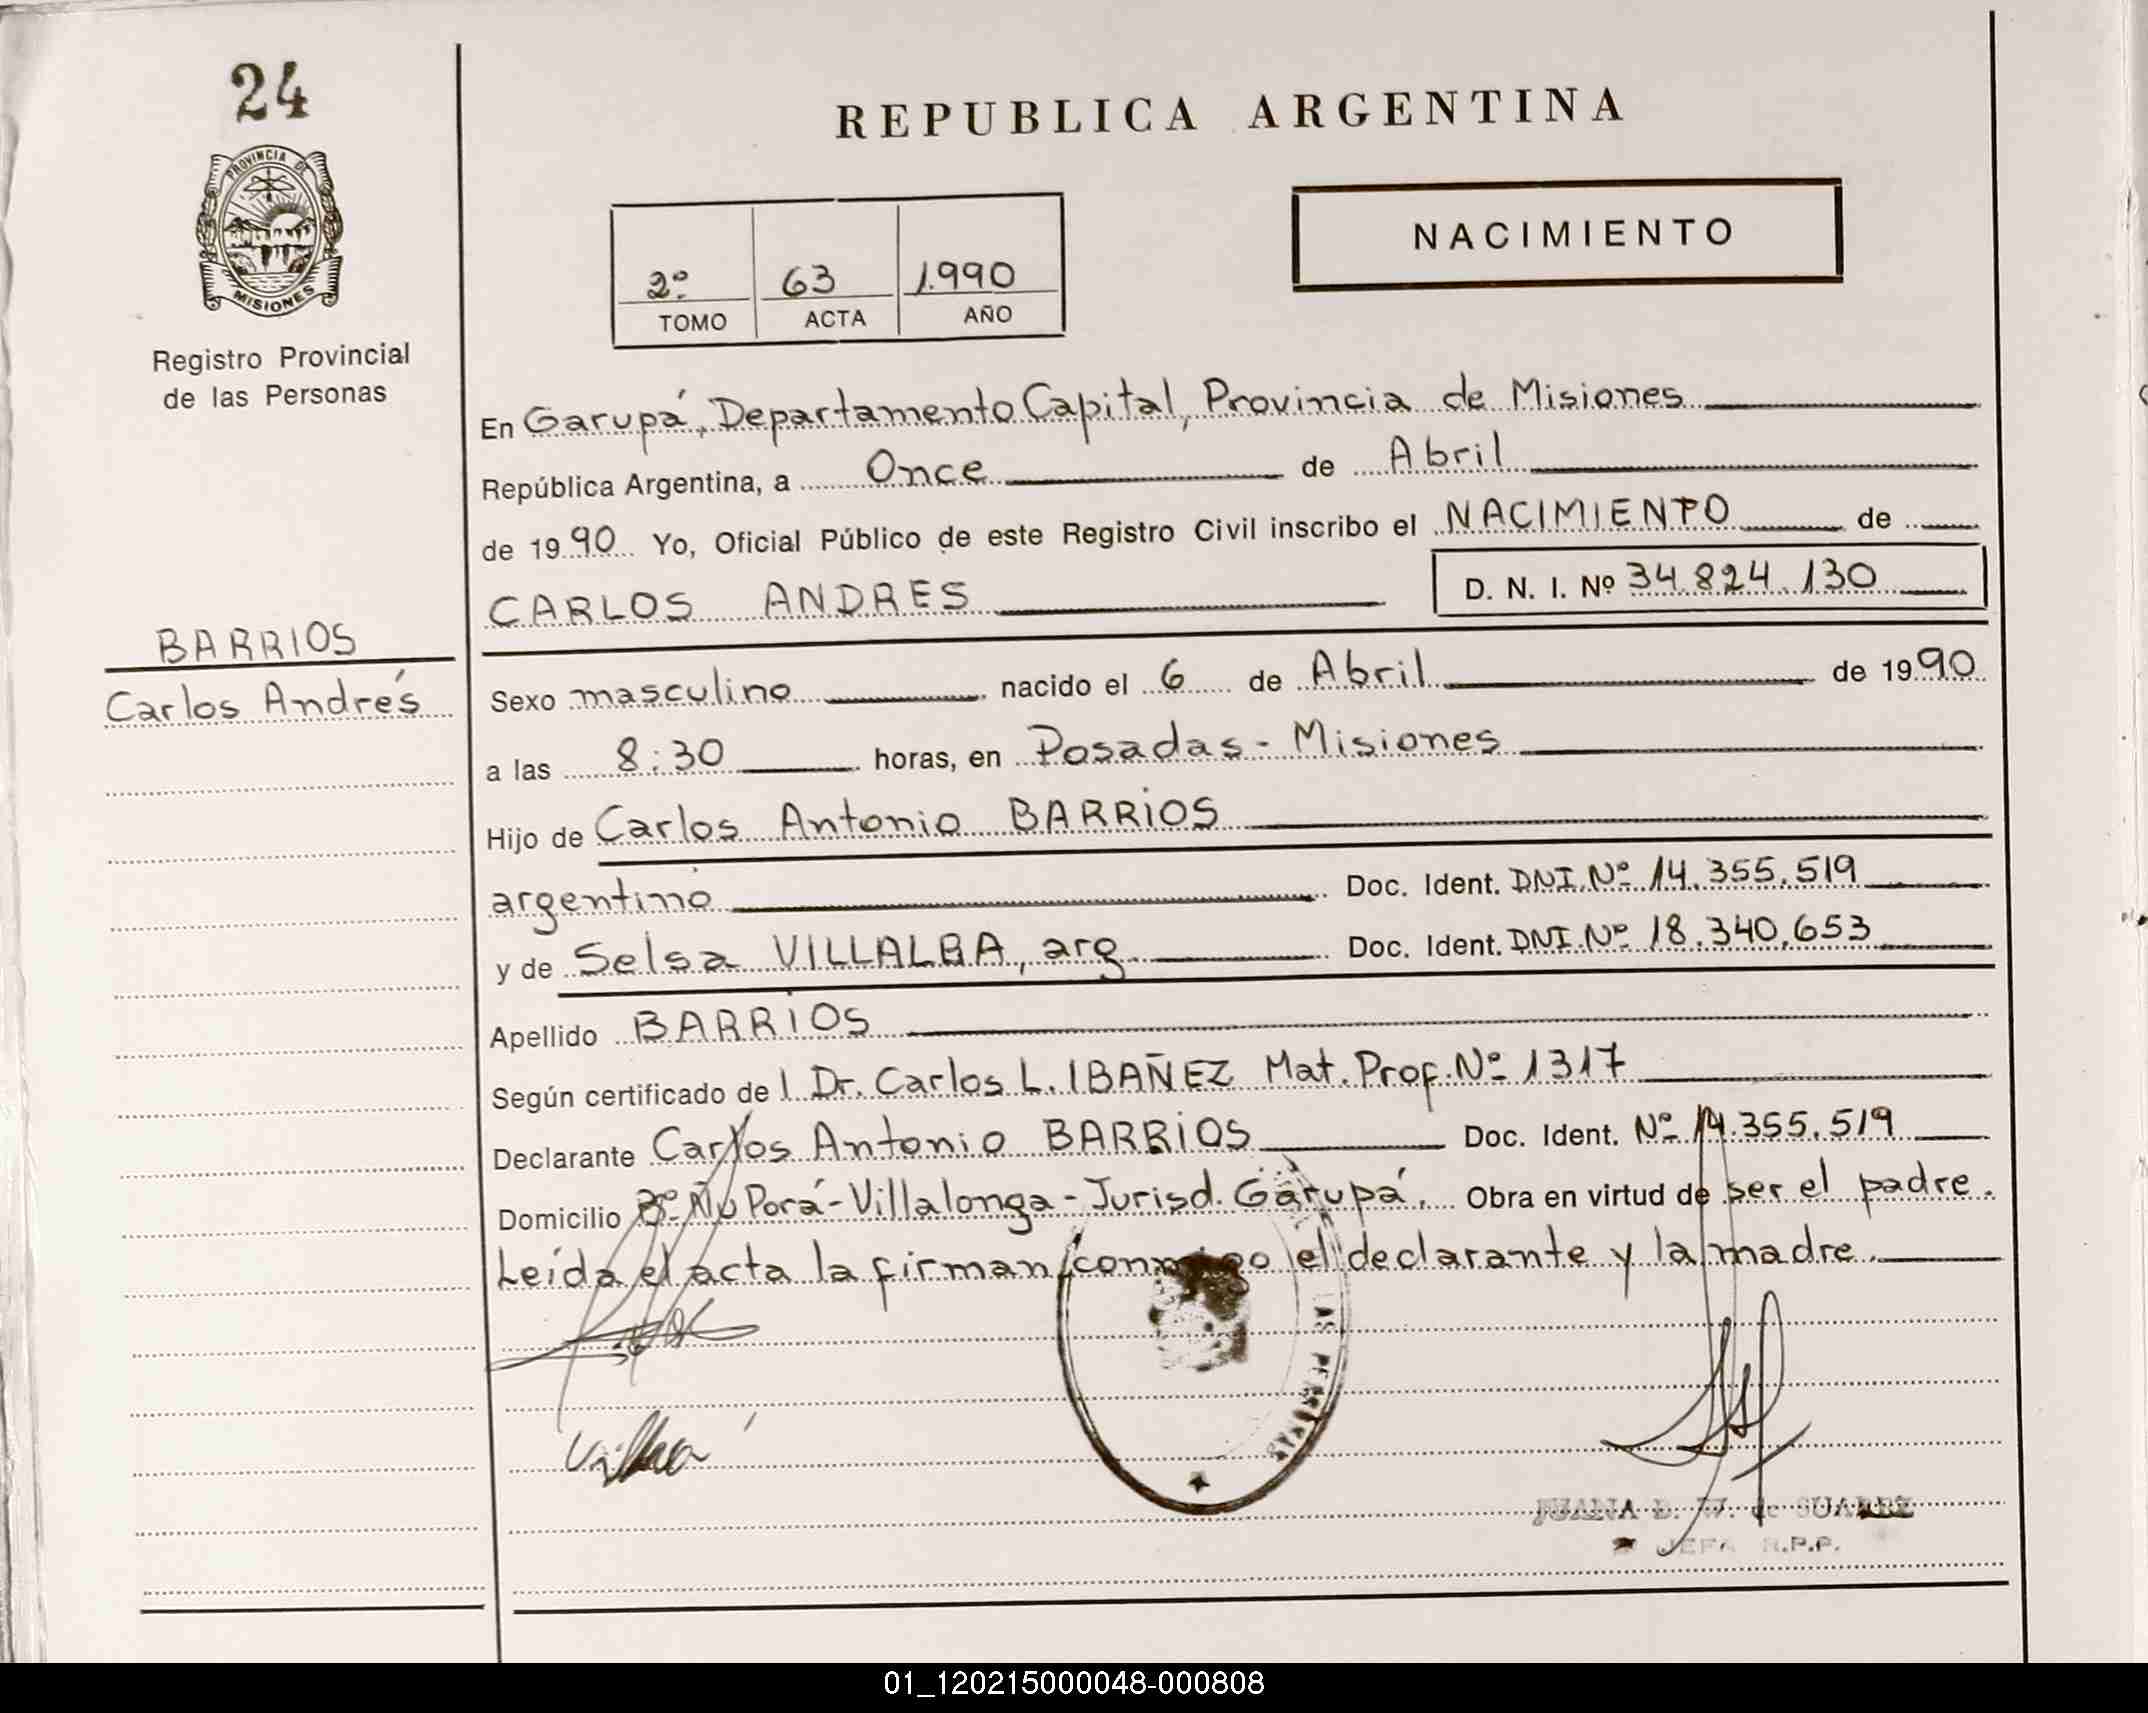 24
PROVINCIA DE
MISIONES
Registro Provincial
de las Personas
BARRIOS
Carlos Andrés
REPUBLICA ARGENTINA
NACIMIENTO
2º 63 1.990
TOMO ACTA AÑO
En Garupá, Departamento Capital, Provincia de Misiones
República Argentina, a Once de Abril
de 1990 Yo, Oficial Público de este Registro Civil inscribo el NACIMIENTO de
CARLOS ANDRES D. N. I. Nº 34.824.130
Sexo masculino nacido el 6 de Abril de 1990
a las 8:30 horas, en Posadas - Misiones
Hijo de Carlos Antonio BARRiOS
argentino Doc. Ident. DNI. Nº 14.355.519
y de Selsa VILLALBA, arg Doc. Ident. DNI. Nº 18.340.653
Apellido BARRiOS
Según certificado de l Dr. Carlos L. IBAÑEZ Mat. Prof. Nº 1317
Declarante Carlos Antonio BARRiOS Doc. Ident. Nº 14.355.519
Domicilio Bº Ñu Porá - Villalonga - Jurisd. Garupá. Obra en virtud de ser el padre.
Leída el acta la firman conmigo el declarante y la madre.
LAS PERSONAS
JUANA B. W. de SUAREZ
JEFA R.P.P.
01_120215000048-000808